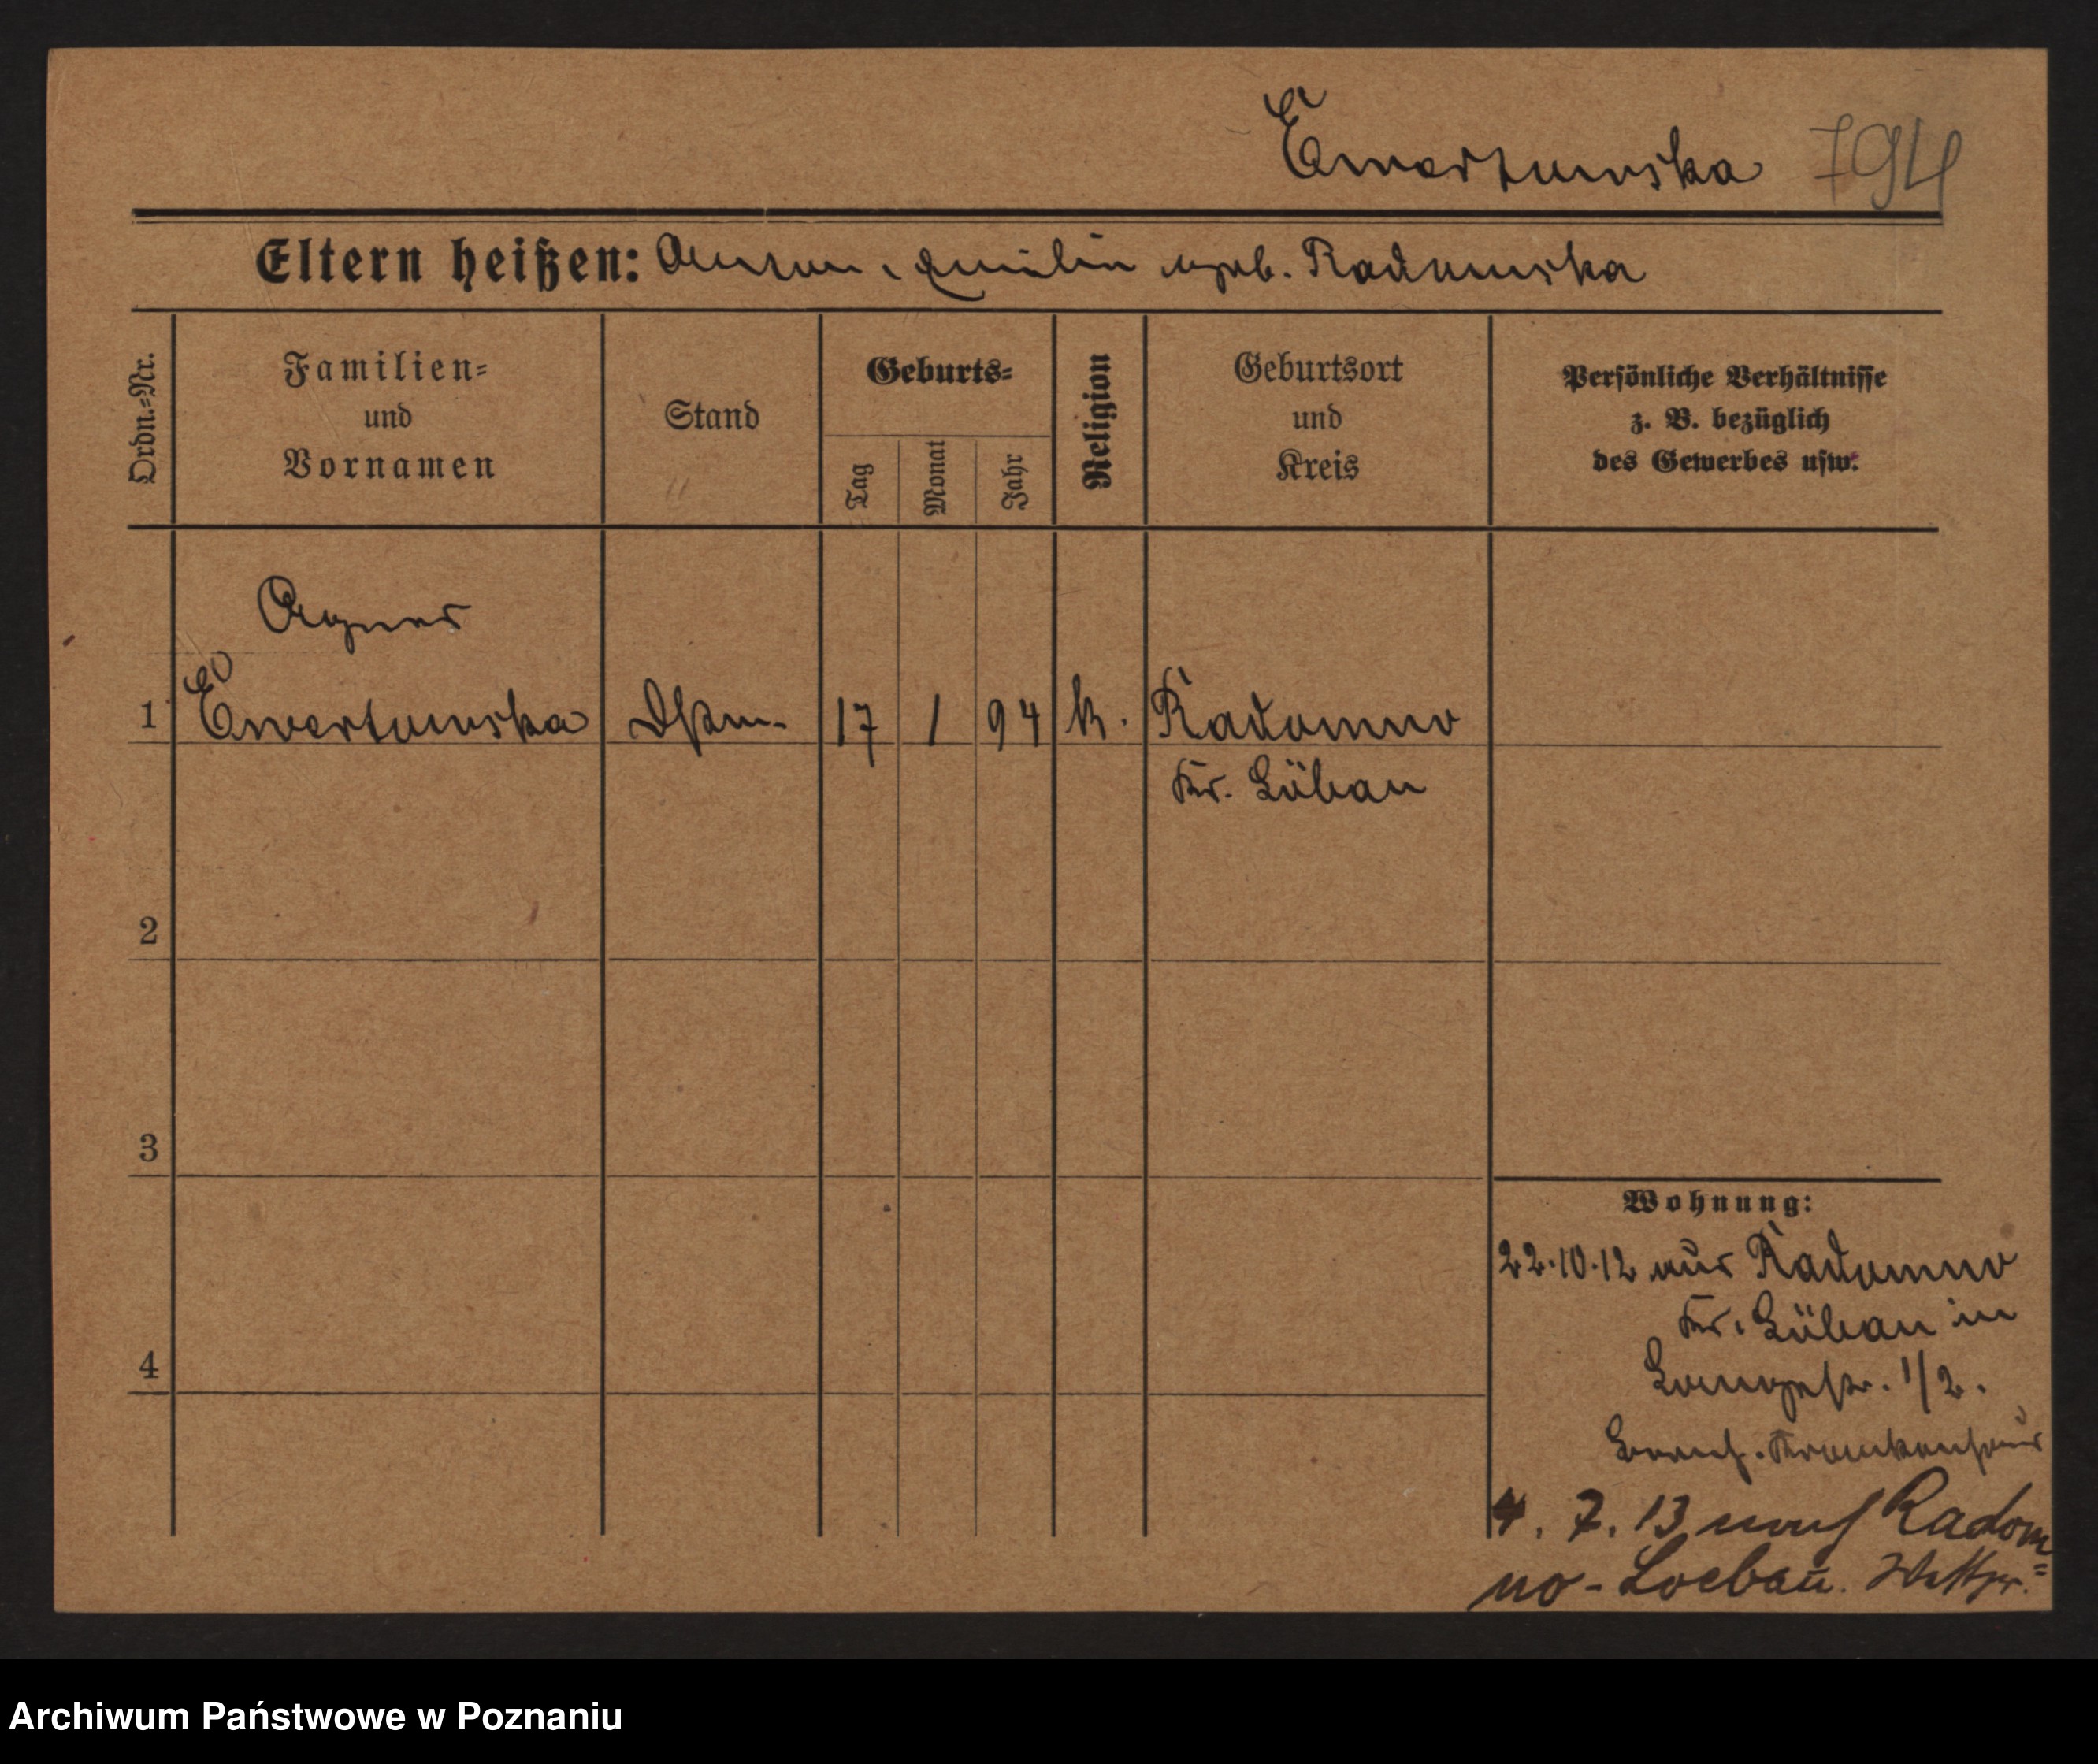 Ewertowska 794
Eltern heißen: Anton, Emilie geb. Radomska
Ordn.=Nr.
Familien=
und
Vornamen
Stand
Geburts=
Tag
Monat
Jahr
Religion
Geburtsort
und
Kreis
Persönliche Verhältnisse
z. B. bezüglich
des Gewerbes usw.
Agnes
1 Ewertowska 17 1 94 k. Radomno
Kr. Löbau
2
3
4
Wohnung:
22.10.12 aus Radomno
Kr. Löbau in
Langestr. 1/2.
Krankenhaus
4. 7. 13 nach Radom=
no - Loebau. Westpr.
Archiwum Państwowe w Poznaniu